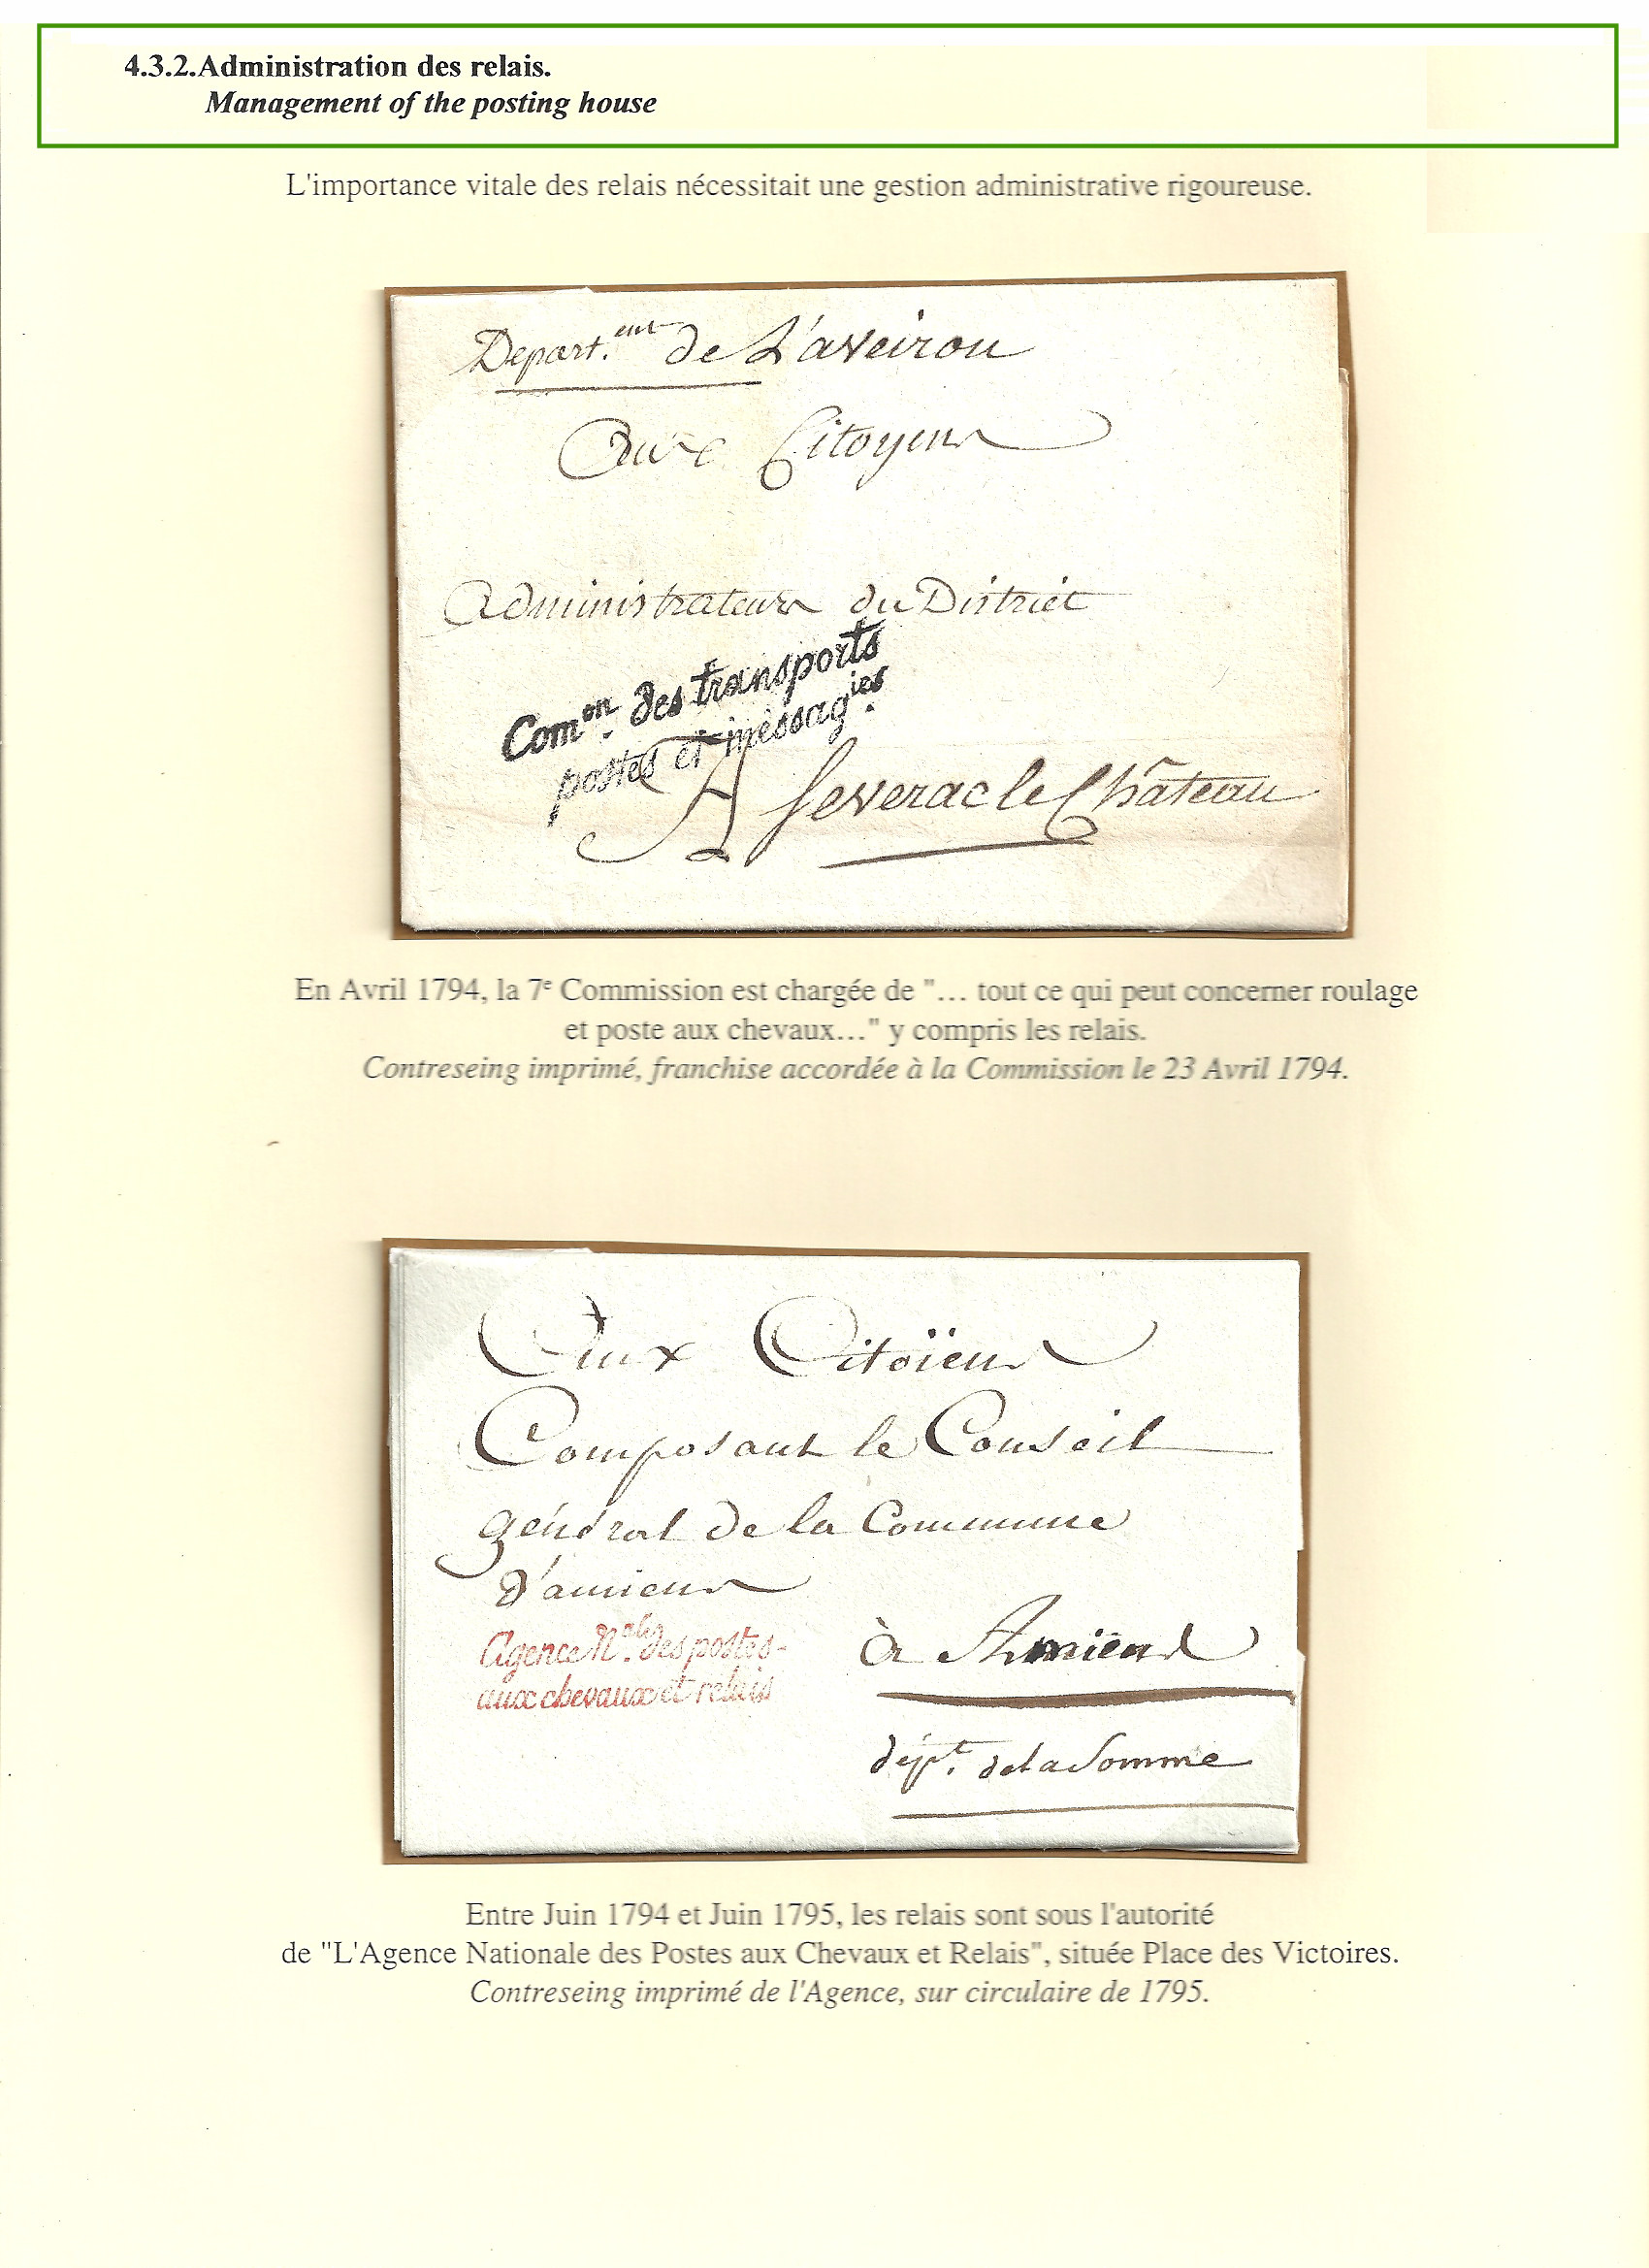 4.3.2.Administration des relais.
Management of the posting house
L'importance vitale des relais nécessitait une gestion administrative rigoureuse.
Depart.ent de L'aveirou
Aux Citoyens
Administrateurs du District
Comon. des transports
postes et messagies.
A Severac le Château
En Avril 1794, la 7e Commission est chargée de "... tout ce qui peut concerner roulage
et poste aux chevaux..." y compris les relais.
Contreseing imprimé, franchise accordée à la Commission le 23 Avril 1794.
Aux Citoïens
Composant le Conseil
général de la Commune
d'amiens
Agence N.ale des postes-
aux chevaux et relais
à Amiens
dépt. de la Somme
Entre Juin 1794 et Juin 1795, les relais sont sous l'autorité
de "L'Agence Nationale des Postes aux Chevaux et Relais", située Place des Victoires.
Contreseing imprimé de l'Agence, sur circulaire de 1795.